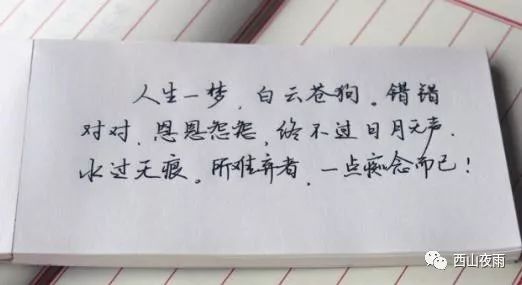 人生一梦，白云苍狗。错错
对对，恩恩怨怨，终不过日月无声，
水过无痕。所难弃者，一点痴念而已！
西山夜雨